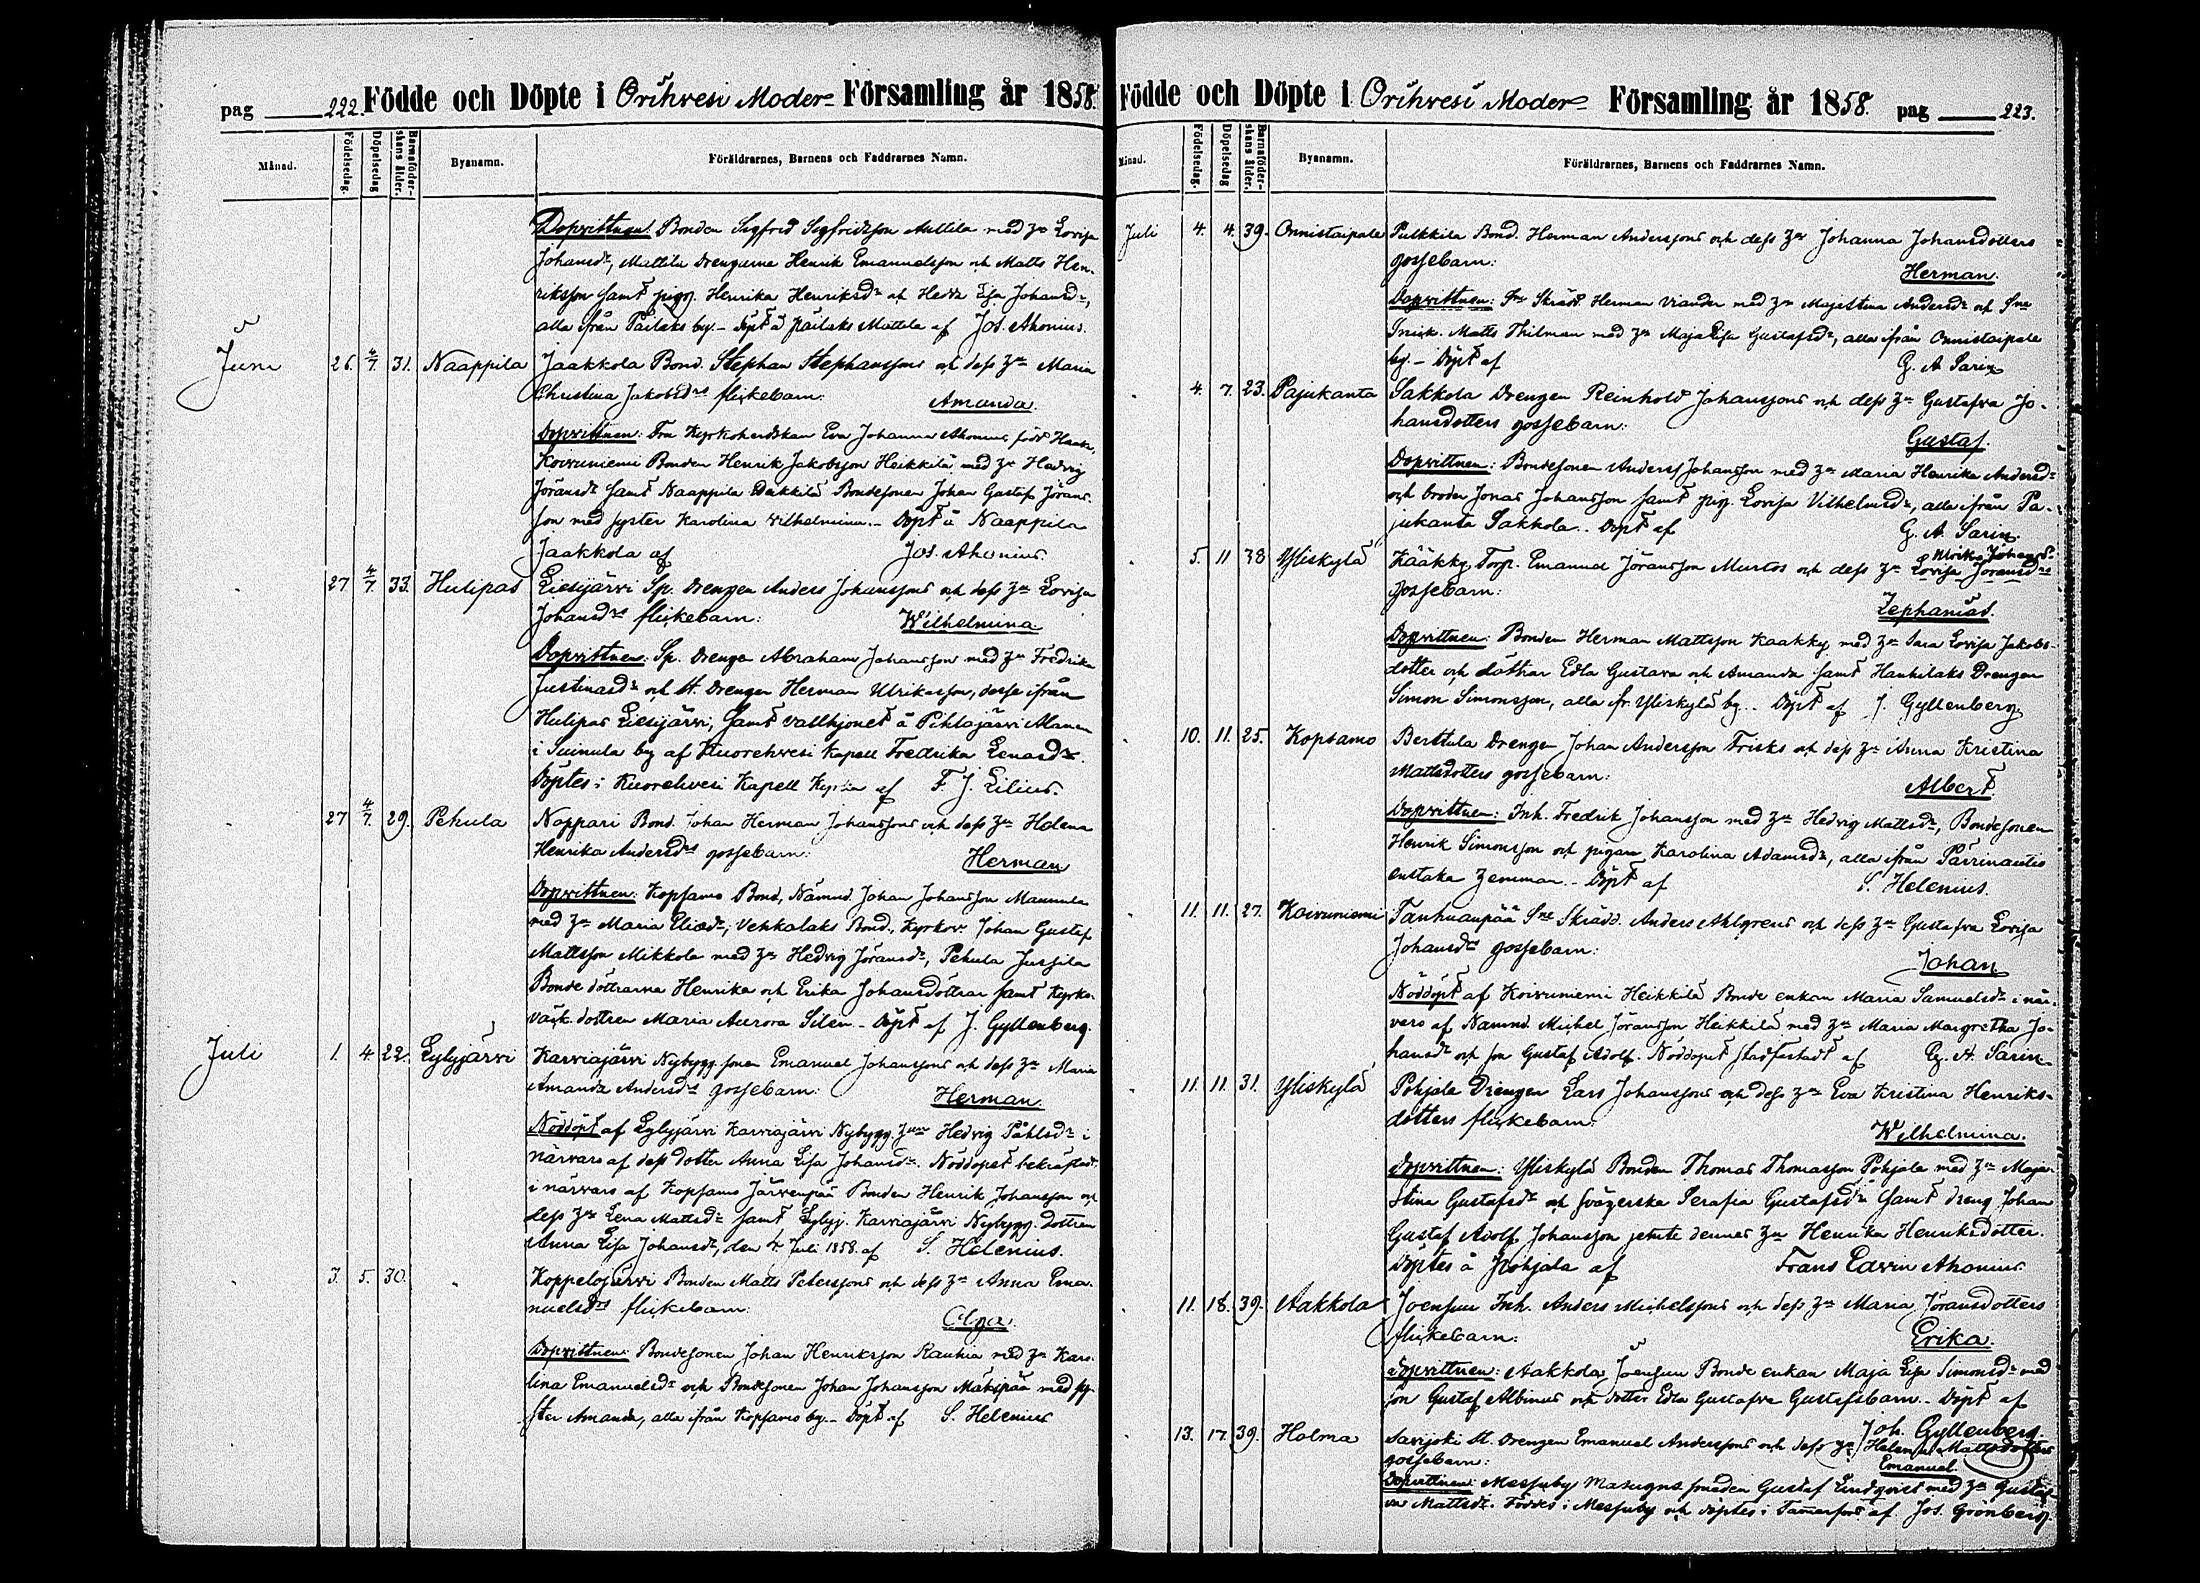 pag 222. Födde och Döpte i Orihvesi Moder- Församling år 1858.
Månad. Födelsedag. Döpelsedag Barnaföderskans ålder. Byanamn. Föräldrarnes, Barnens och Faddrarnes Namn.
Dopvittnen: Bonden Sigfrid Sigfridsson Mattila med hu Lovisa
Johansdr, Mattila drengarne Henrik Emanuelsson och Matts Hen-
riksson samt pig. Henrika Henriksdr och Hedda Lisa Johansdr,
alla ifrån Päilaks by. - Döpt å Päilaks Mattila af Jos. Ahonius.
Juni 26. 4/7 31. Naappila Jaakkola Bond. Stephan Stephanssons och dess hu Maria
Christina Jakobsdrs flickebarn: Amanda.
Dopvittnen: Fru Kyrkoherdskan Eva Johanna Ahonius född
Koivuniemi Bonden Henrik Jakobsson Heikkilä med hu Hedvig
Jöransdr samt Naappila Bondesonen Johan Gustaf Jörans-
son med syster Karolina Wilhelmina. - Döpt å Naappila
Jaakkola af Jos. Ahonius.
27 4/7 33. Hulipas Liesijärvi Sp. Drengen Anders Johanssons och dess hu Lovisa
Johansdrs flickebarn: Wilhelmina.
Dopvittnen: Sp. Drengen Abraham Johansson med hu Fredrika
Justinasdr och St. Drengen Herman Ulriksson, desse ifrån
Hulipas Liesijärvi, samt vallhjonet å Pihlajärvi
i Suinula by af Kuorehvesi Kapell Fredrika Lenasdr.
Döptes i Kuorehvesi Kapell Kyrka af F. J. Lilius.
27 4/7 29. Pehula Noppari Bond. Johan Herman Johanssons och dess hu Helena
Henrika Andersdrs gossebarn: Herman
Dopvittnen: Kopsamo Bond. Nämnd. Johan Johansson Maunula
med hu Maria Eliaedr, Vehkalaks Bond., Kyrkov. Johan Gustaf
Mattsson Mikkola med hu Hedvig Jöransdr, Pehula Jussila
Bonde döttrarna Henrika och Erika Johansdöttrar samt Kyrko-
väck. dottren Maria Aurora Silen. - Döpt af J. Gyllenberg.
Juli 1. 4. 22. Lylyjärvi Karviajärvi Nybygg. sonen Emanuel Johanssons och dess hu Maria
Amanda Andersdrs gossebarn: Herman.
Nöddöpt af Lylyjärvi Karviajärvi Nybygg. hun Hedvig Påhlsdr i
närvaro af dess dotter Anna Lisa Johansdr. Nöddopet bekräftadt
i närvaro af Kopsamo Järvenpää Bonden Henrik Johansson och
dess hu Lena Mattsdr samt Lylyj. Karviajärvi Nybygg. dottren
Anna Lisa Johansdr, den 4. Juli 1858. af S. Helenius.
3. 5. 30. " Koppelojärvi Bonden Matts Peterssons och dess hu Anna Ema-
nuelsdrs flickebarn: Olga.
Dopvittnen: Bondesonen Johan Henriksson Rauhia med hu Karo-
lina Emanuelsdr och Bondesonen Johan Johansson Mäkipää med sy-
ster Amanda, alla ifrån Kopsamo by. - Döpt af S. Helenius
Födde och Döpte i Orihvesi Moder- Församling år 1858. pag 223.
Månad. Födelsedag. Döpelsedag Barnaföderskans ålder. Byanamn. Föräldrarnes, Barnens och Faddrarnes Namn.
Juli 4. 4. 39. Onnistaipale Pulkkila Bond. Herman Anderssons och dess hu Johanna Johansdotters
gossebarn: Herman.
Dopvittnen: Sne Skrädd. Herman Viander med hu Majastina Andersdr och Sne
Snick. Matts Thilman med hu Maja Lisa Gustafsdr, alla ifrån Onnistaipale
by. - Döpt af G. A. Sarin
" 4. 7. 23. Pajukanta Sakkola Drengen Reinhold Johanssons och dess hu Gustafva Jo-
hansdotters gossebarn: Gustaf.
Dopvittnen: Bondesonen Anders Johansson med hu Maria Henrika Andersdr
och brodren Jonas Johansson samt pig. Lovisa Vilhelmsdr, alla ifrån Pa-
jukanta Sakkola. - Döpt af G. A. Sarin.
Ulrika Johansd-
" 5. 11 38 Yliskylä Kääkky Torp. Emanuel Jöransson Murtos och dess hu Lovisa Jöransdrs
gossebarn: Zephanias.
Dopvittnen: Bonden Herman Mattsson Kaakky med hu Sara Lovisa Jakobs-
dotter och döttrar Edla Gustava och Amanda samt Hanhilaks Drengen
Simon Simonsson, alla fr. Yliskylä by. - Döpt af J. Gyllenberg.
" 10. 11. 25. Kopsamo Berttula Drengen Johan Andersson Frisks och dess hu Anna Kristina
Mattsdotters gossebarn: Albert.
Dopvittnen: Inh. Fredrik Johansson med hu Hedvig Mattsdr, Bondesonen
Henrik Simonsson och pigan Karolina Adamsdr, alla ifrån Pärrinautio
enstaka hemman. - Döpt af S. Helenius.
" 11. 11. 27. Koivuniemi Tanhuanpää Sne Skrädd. Anders Ahlgrens och dess hu Gustafva Lovisa
Johansdrs gossebarn: Johan
Nöddöpt af Koivuniemi Heikkilä Bonde enkan Maria Samuelsdr i när-
varo af Nämnd. Michel Jöransson Heikkilä med hu Maria Margretha Jo-
hansdr och son Gustaf Adolf. Nöddopet stadfästadt af G. A. Sarin
" 11. 11. 31. Yliskylä Pohjala Drengen Lars Johanssons och dess hu Eva Kristina Henriks-
dotters flickebarn: Wilhelmina.
Dopvittnen: Yliskylä Bonden Thomas Thomasson Pohjala med hu Maja
Stina Gustafsdr och svägerska Serafia Gustafsdr samt dreng Johan
Gustaf Adolf Johansson jemte dennes hu Henrika Henriksdotter.
Döptes å Pohjala af Frans Edvin Ahonius.
" 11. 18. 39. Aakkola Joensuu Inh. Anders Michelssons och dess hu Maria Jöransdotters
flickebarn: Erika.
Dopvittnen: Aakkola Joensuu Bonde enkan Maja Lisa Simonsdr med
son Gustaf Albinus och dotter Edla Gustafva Gustafsbarn. - Döpt af
Joh. Gyllenberg.
" 13. 17. 39. Holma Savijoki St. Drengen Emanuel Anderssons och dess hu Helena Mattsdotters
gossebarn: Emanuel
Dopvittnen: Messuby Masugns smeden Gustaf Lindqvist med hu Gustaf-
va Mattsdr. Föddes i Messuby och döptes i Tammerfors af Jos. Grönberg.